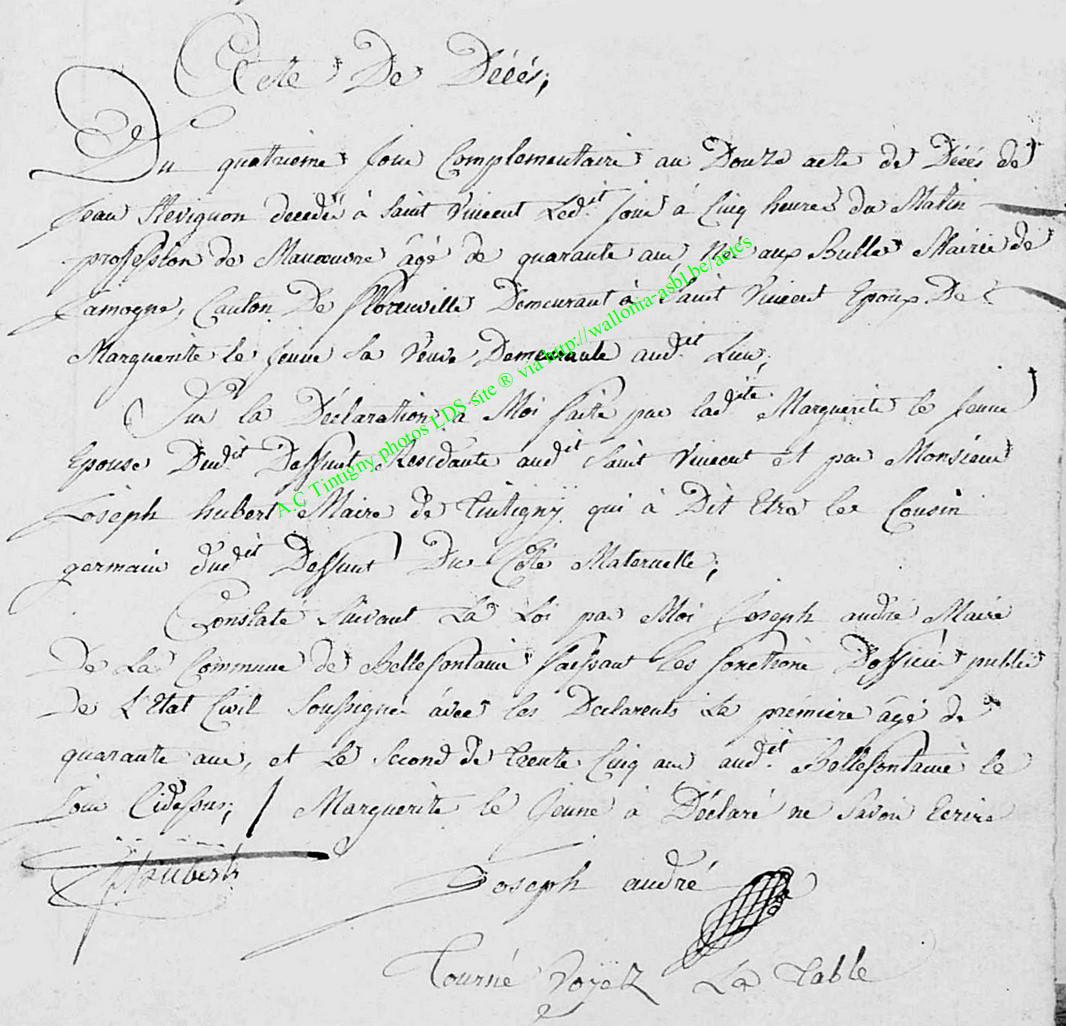 Acte De Décés;
Du quatrieme Jour Complementaire an Douze acte de Décés de
Jean decedé à Saint Vincent Ledit Jour à Cinq heures du Matin
profession de Manœuvre âgé de quarante ans Né aux Bulles Mairie de
Jamogne, Canton De florenville Demeurant à Saint Vincent Epoux De
Marguerite le Jeune Sa Veuve Demeurante audit Lieu;
Sur la Déclaration à Moi faite par ladite Marguerite le Jeune
Epouse Dudit Deffunt Residante audit Saint Vincent et par Monsieur
Joseph hubert Maire de Tintigny qui à Dit Etre le Cousin
germain dudit Deffunt Du Côté Maternelle;
Constaté Suivant La Loi par Moi Joseph andré Maire
De La Commune de Bellefontaine faissant les fonctions D'officier public
De L'Etat Civil Soussigné avec les Declarents La première âgé de
quarante ans, et Le Second de trente Cinq ans audit Bellefontaine le
Jour Cidessus; / Marguerite le Jeune à Déclaré ne Savoir Ecrire
Joseph andré
Tourné Voyez La Table
A.C Tintigny photos LDS site ® via http://wallonia-asbl.be/actes